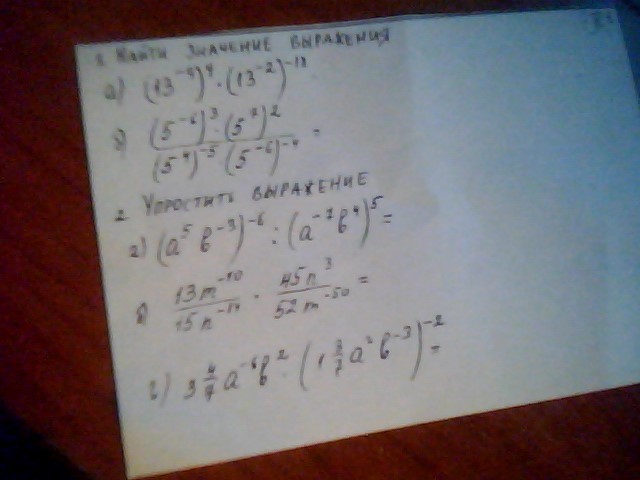 1. НАЙТИ ЗНАЧЕНИЕ ВЫРАЖЕНИЯ
а) (13⁻⁹)⁴ · (13⁻²)⁻¹⁸
б) (5⁻⁶)³ · (5⁷)² / (5⁴)⁻⁵ · (5⁻⁶)⁻⁴ =
2 УПРОСТИТЬ ВЫРАЖЕНИЕ
а) (a⁵ b⁻³)⁻⁶ : (a⁻⁷ b⁴)⁵ =
б) 13m⁻¹⁰ / 15n⁻¹⁴ · 45n³ / 52m⁻⁵⁰ =
в) 3 4/7 a⁻⁶b² · (1 3/7 a² b⁻³)⁻² =